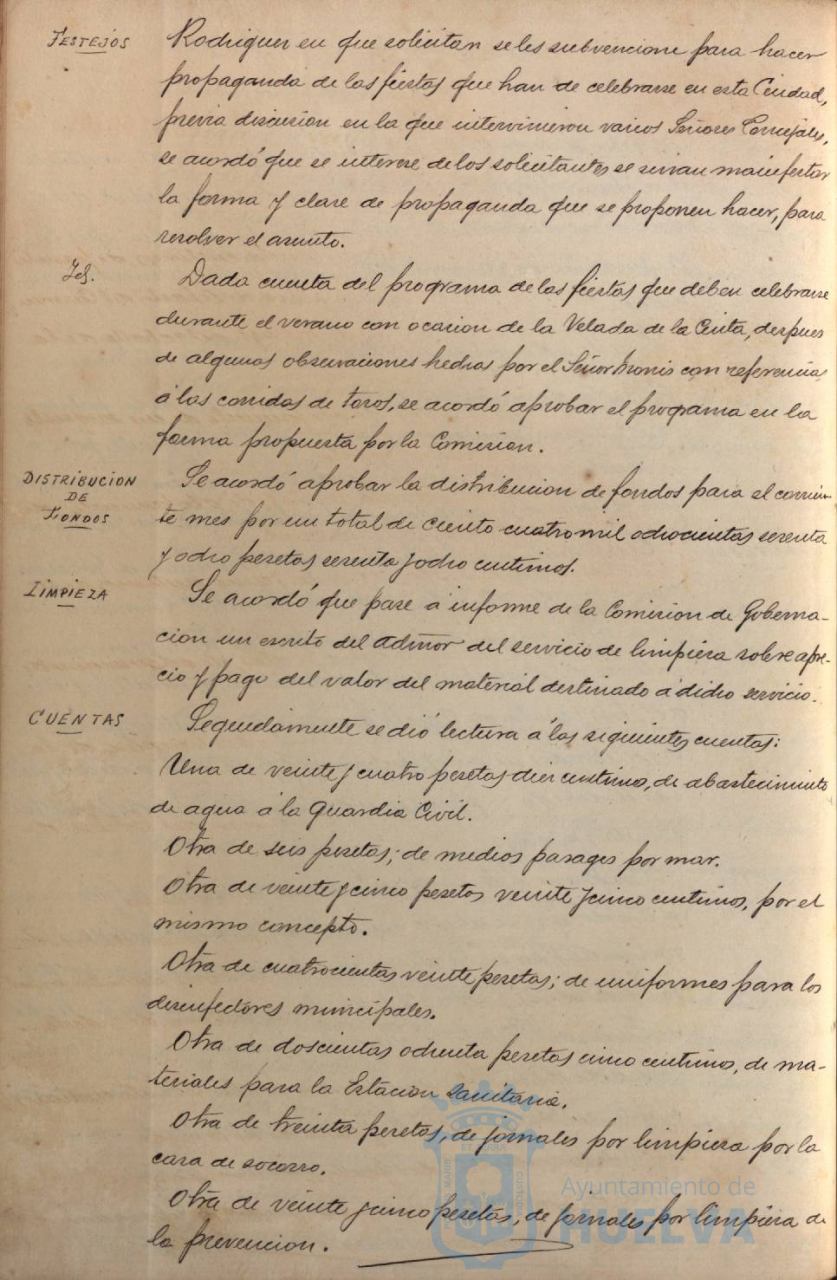 FESTEJOS
Rodriguez en que solicitan se les subvencione para hacer
propaganda de las fiestas que han de celebrarse en esta Ciudad,
previa discusion en la que intervinieron varios Señores Concejales,
se acordó que se interese de los solicitantes se sirvan manifestar
la forma y clase de propaganda que se proponen hacer, para
resolver el asunto.
Id.
Dada cuenta del programa de las fiestas que deben celebrarse
durante el verano con ocasion de la Velada de la Cinta, despues
de algunas observaciones hechas por el Señor con referencia
á las corridas de toros, se acordó aprobar el programa en la
forma propuesta por la Comision.
DISTRIBUCION
DE
FONDOS
Se acordó aprobar la distribucion de fondos para el corrien-
te mes por un total de ciento cuatro mil ochocientas sesenta
y ocho pesetas sesenta y ocho centimos.
LIMPIEZA
Se acordó que pase á informe de la Comision de Goberna-
cion un escrito del Admor del servicio de limpieza sobre apre-
cio y pago del valor del material destinado á dicho servicio.
CUENTAS
Seguidamente se dió lectura á las siguientes cuentas:
Una de veinte y cuatro pesetas diez centimos, de abastecimiento
de agua á la Guardia Civil.
Otra de seis pesetas; de medios pasages por mar.
Otra de veinte y cinco pesetas veinte y cinco centimos, por el
mismo concepto.
Otra de cuatrocientas veinte pesetas; de uniformes para los
desinfectores municipales.
Otra de doscientas ochenta pesetas cinco centimos, de ma-
teriales para la Estacion sanitaria.
Otra de treinta pesetas, de jornales por limpieza por la
casa de socorro.
Otra de veinte y cinco pesetas, de jornales por limpieza de
la prevencion.
Ayuntamiento de
HUELVA